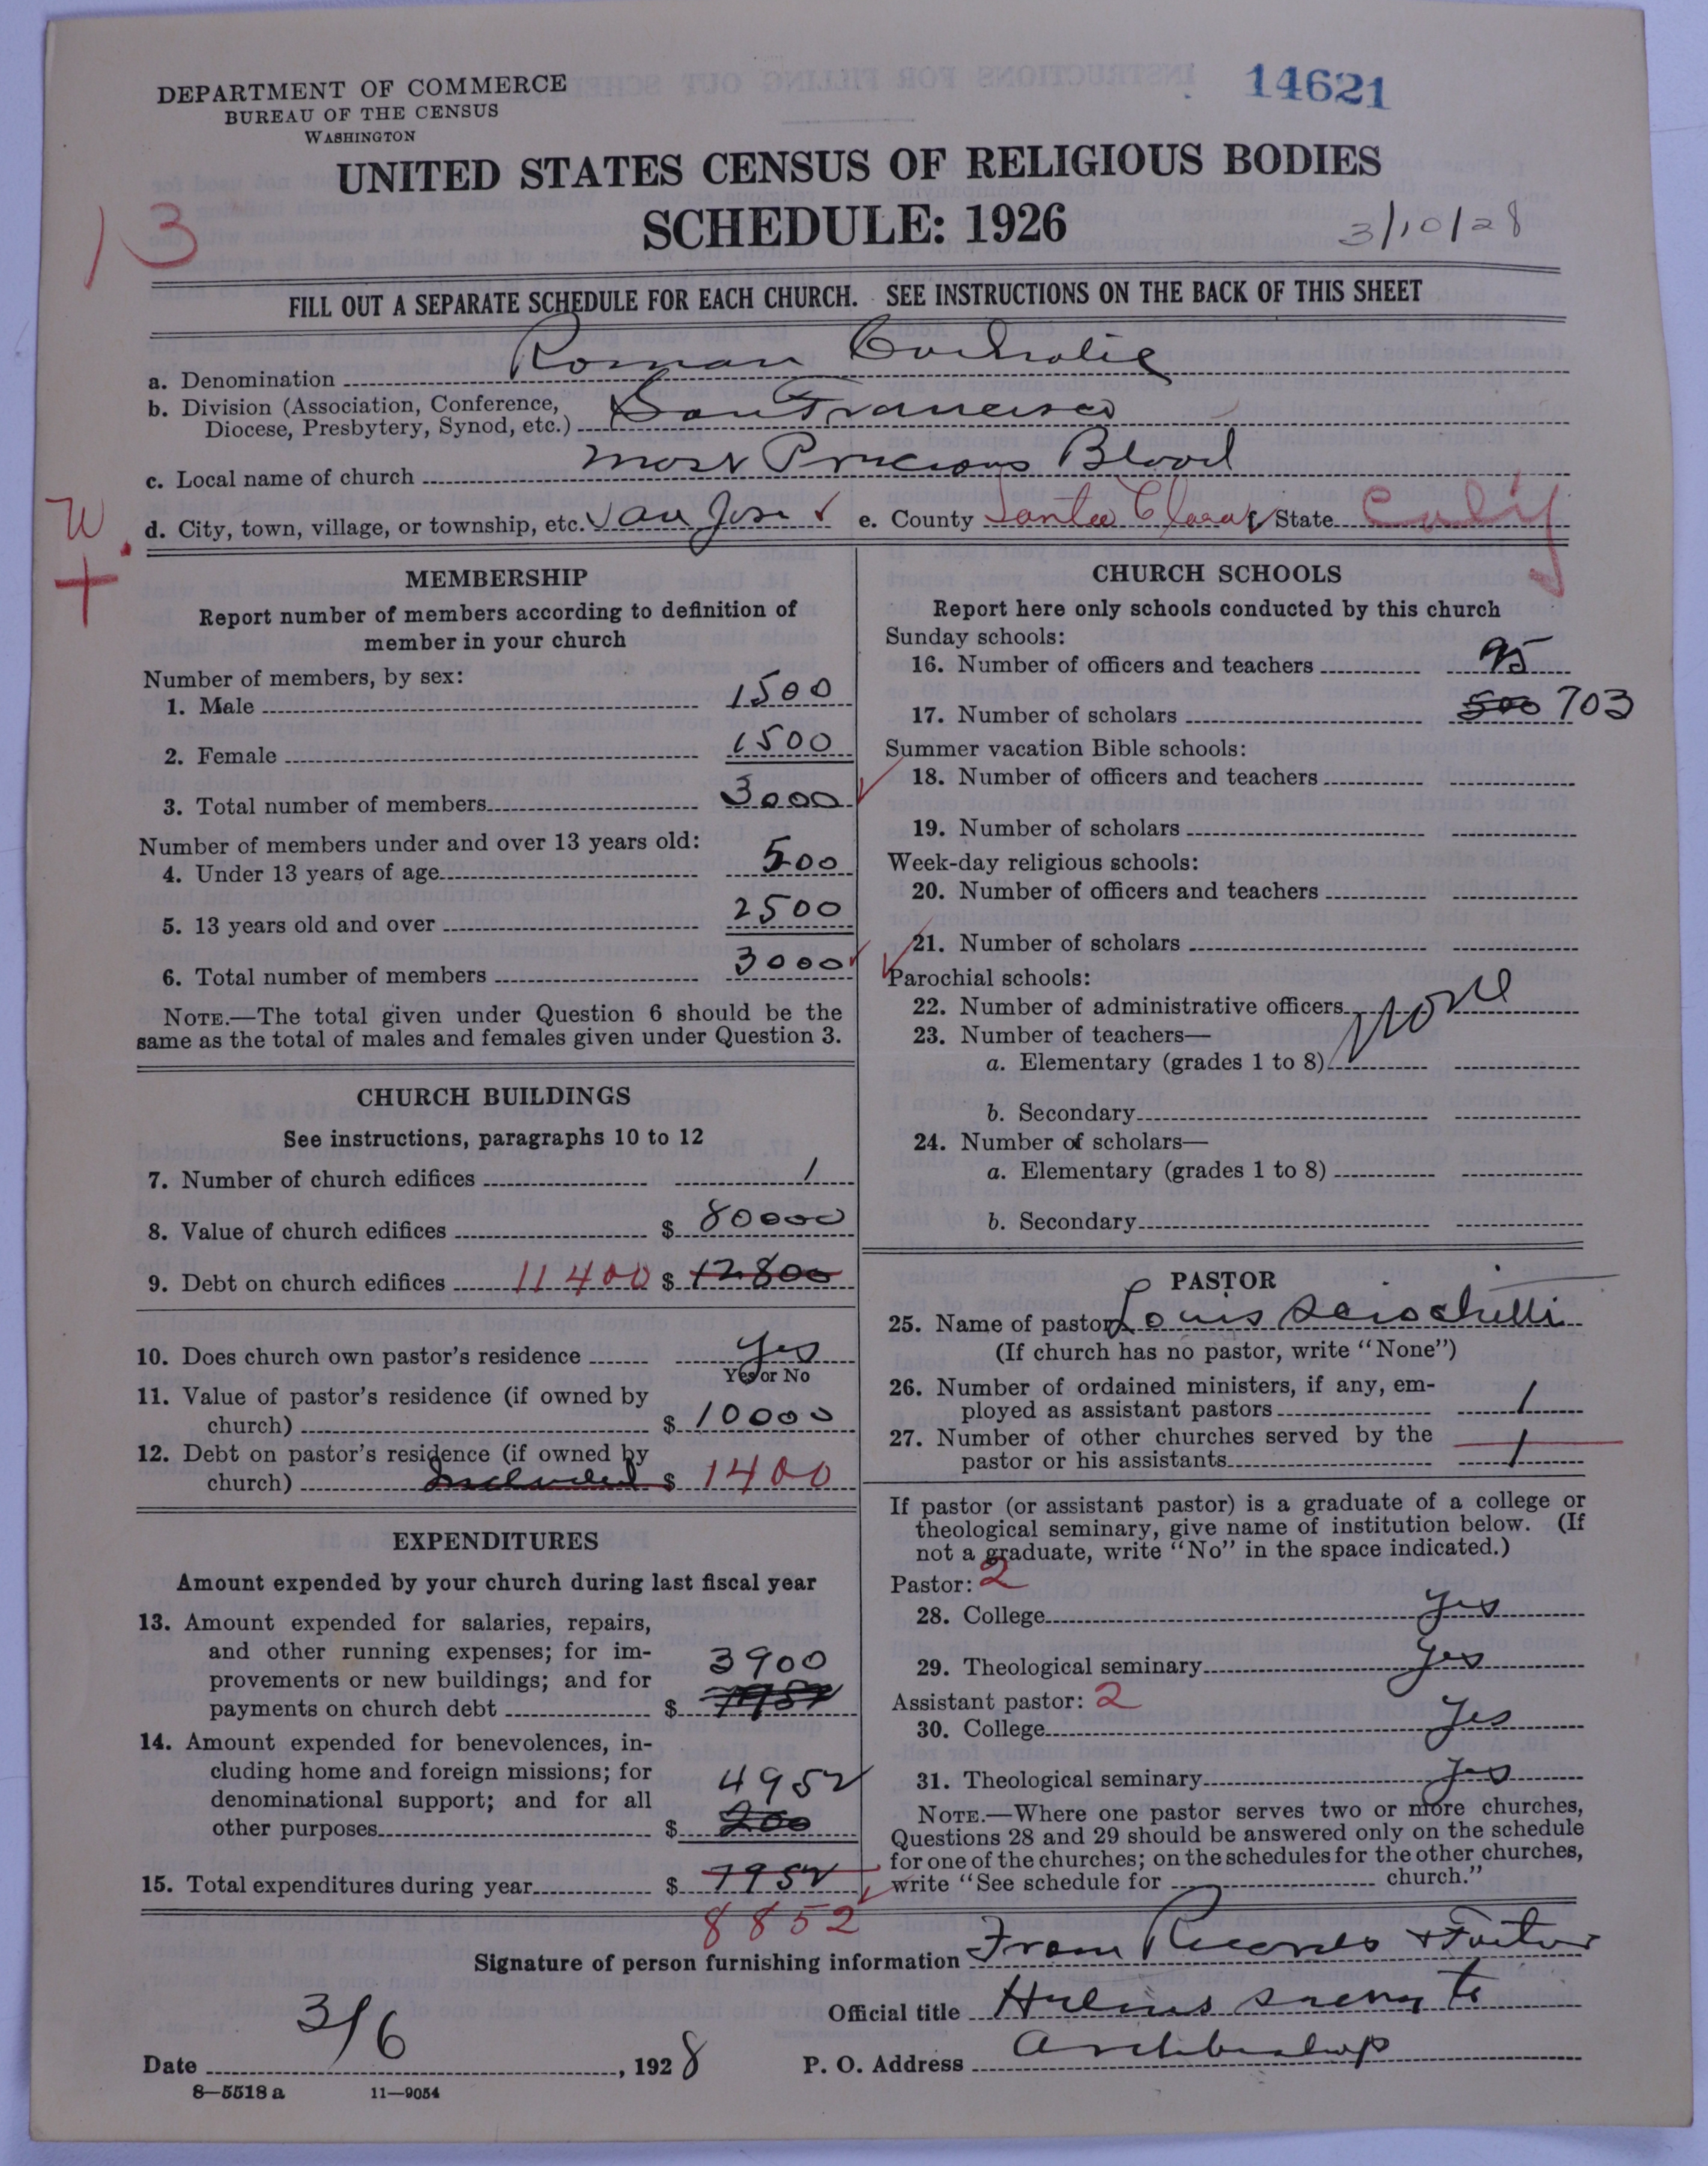 DEPARTMENT OF COMMERCE
BUREAU OF THE CENSUS
WASHINGTON
14621
UNITED STATES CENSUS OF RELIGIOUS BODIES
SCHEDULE: 1926
3/10/28
13
FILL OUT A SEPARATE SCHEDULE FOR EACH CHURCH. SEE INSTRUCTIONS ON THE BACK OF THIS SHEET
a. Denomination Roman Catholic
b. Division (Association, Conference,
Diocese, Presbytery, Synod, etc.) San Francisco
c. Local name of church Most Precious Blood
W
d. City, town, village, or township, etc. San Jose e. County Santa Clara f. State Calif
+
MEMBERSHIP
Report number of members according to definition of
member in your church
Number of members, by sex:
1. Male 1500
2. Female 1500
3. Total number of members 3000
Number of members under and over 13 years old:
4. Under 13 years of age 500
5. 13 years old and over 2500
6. Total number of members 3000
NOTE.—The total given under Question 6 should be the
same as the total of males and females given under Question 3.
CHURCH BUILDINGS
See instructions, paragraphs 10 to 12
7. Number of church edifices 1
8. Value of church edifices $ 80000
9. Debt on church edifices 11400 $ 12800
10. Does church own pastor's residence Yes
Yes or No
11. Value of pastor's residence (if owned by
church) $ 10000
12. Debt on pastor's residence (if owned by
church) Included $ 1400
EXPENDITURES
Amount expended by your church during last fiscal year
13. Amount expended for salaries, repairs,
and other running expenses; for im-
provements or new buildings; and for 3900
payments on church debt $ 7952
14. Amount expended for benevolences, in-
cluding home and foreign missions; for
denominational support; and for all 4952
other purposes $ 200
15. Total expenditures during year $ 7952
8852
CHURCH SCHOOLS
Report here only schools conducted by this church
Sunday schools:
16. Number of officers and teachers
17. Number of scholars 500 703
Summer vacation Bible schools:
18. Number of officers and teachers
19. Number of scholars
Week-day religious schools:
20. Number of officers and teachers
21. Number of scholars
Parochial schools:
22. Number of administrative officers None
23. Number of teachers—
a. Elementary (grades 1 to 8)
b. Secondary
24. Number of scholars—
a. Elementary (grades 1 to 8)
b. Secondary
PASTOR
25. Name of pastor Louis
(If church has no pastor, write "None")
26. Number of ordained ministers, if any, em-
ployed as assistant pastors 1
27. Number of other churches served by the
pastor or his assistants 1
If pastor (or assistant pastor) is a graduate of a college or
theological seminary, give name of institution below. (If
not a graduate, write "No" in the space indicated.)
Pastor: 2
28. College Yes
29. Theological seminary Yes
Assistant pastor: 2
30. College Yes
31. Theological seminary Yes
NOTE.—Where one pastor serves two or more churches,
Questions 28 and 29 should be answered only on the schedule
for one of the churches; on the schedules for the other churches,
write "See schedule for church."
Signature of person furnishing information From Records +
Official title to
Date 3/6, 1928
P. O. Address Archbishop
8—5518 a 11—9054